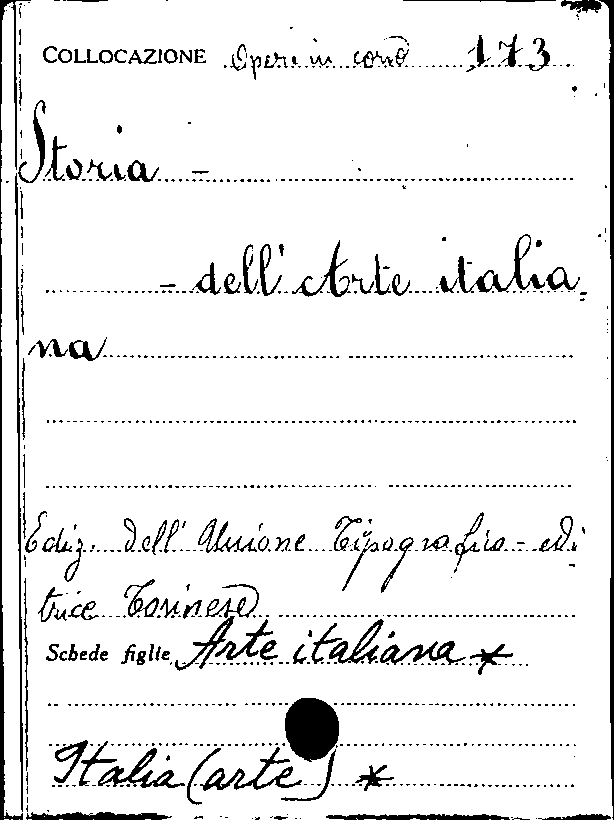 COLLOCAZIONE Opere in cors 173
Storia -
- dell'Arte italia=
na
Ediz. dell'Unione Tipografico-edi
trice Torinese
Schede figlie Arte italiana *
Italia (arte) *